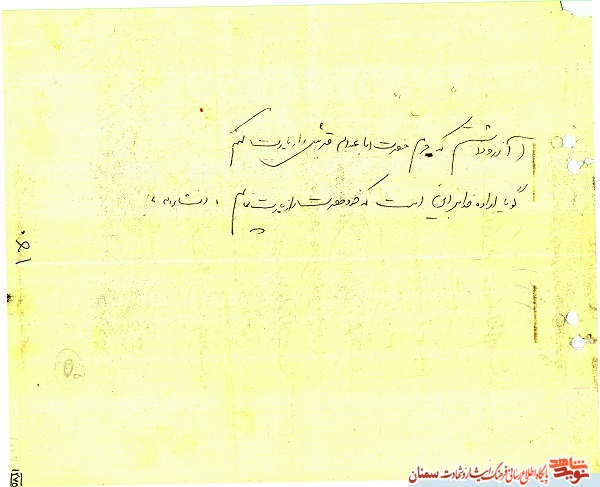 ( آرزو داشتم که حرم حضرت اباعبداله قبرش را زیارت کنم
گویا اراده خدا براین است که خود حضرت را زیارت نمایم ، انشااله ،
نوید شاهد
پایگاه اطلاع رسانی فرهنگ ایثار و شهادت سمنان